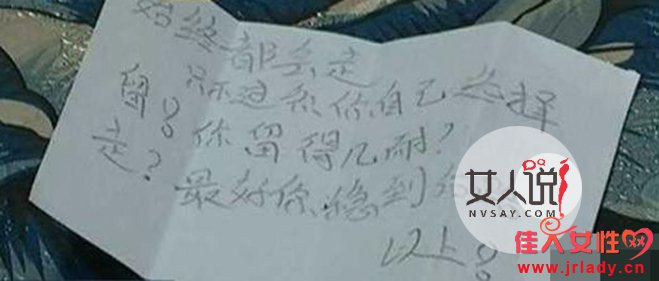 始终都会走
只不过系你自己选择
留？
走？
你留得几耐？
最好你稳到
以上？
女人说
NVSAY.COM
佳人女性网
www.jrlady.cn